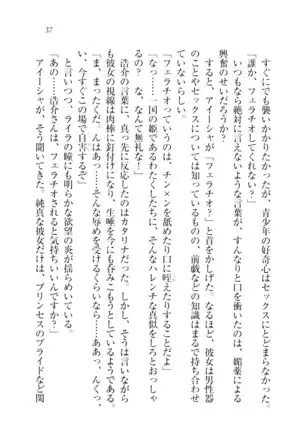 37
すぐにでも襲いかかりたかったが、青少年の好奇心はセックスにとどまらなかった。
「あのさ、フェラチオしてくれない？」
いつもなら絶対に言えないような言葉が、すんなりと口を衝いたのは、媚薬による興奮のせいだろうか？
すると、アイーシャが「フェラチオ？」と首をかしげた。なるほど、彼女は男性器のことやセックスについては知っているものの、前戯などの知識はまるで持ち合わせていないらしい。
「フェラチオっていうのは、チン×ンを舐めたり口に咥えたりすることだよ」
「なっ……一国の姫であるわたくしたちに、そんなハレンチな真似をしろとおっしゃるの？　な、なんて無礼な！」
浩介の言葉に、真っ先に反応したのはカタリナだった。しかし、そうは言いながらも彼女の視線は肉棒に釘付けになり、生唾を今にも呑みこもうとしているようである。
「ま、まったくだ。んはあっ……そんな辱めを受けるくらいなら……ああっ、んくっ、い、今すぐこの場で自害するぞ」
と言いつつ、ライラの瞳にも明らかな欲望の炎が揺らめいている。
「あの……浩介さんは、フェラチオされると気持ちいいんですか？」
アイーシャが、そう聞いてきた。純真な彼女だけは、プリンセスのプライドなど関